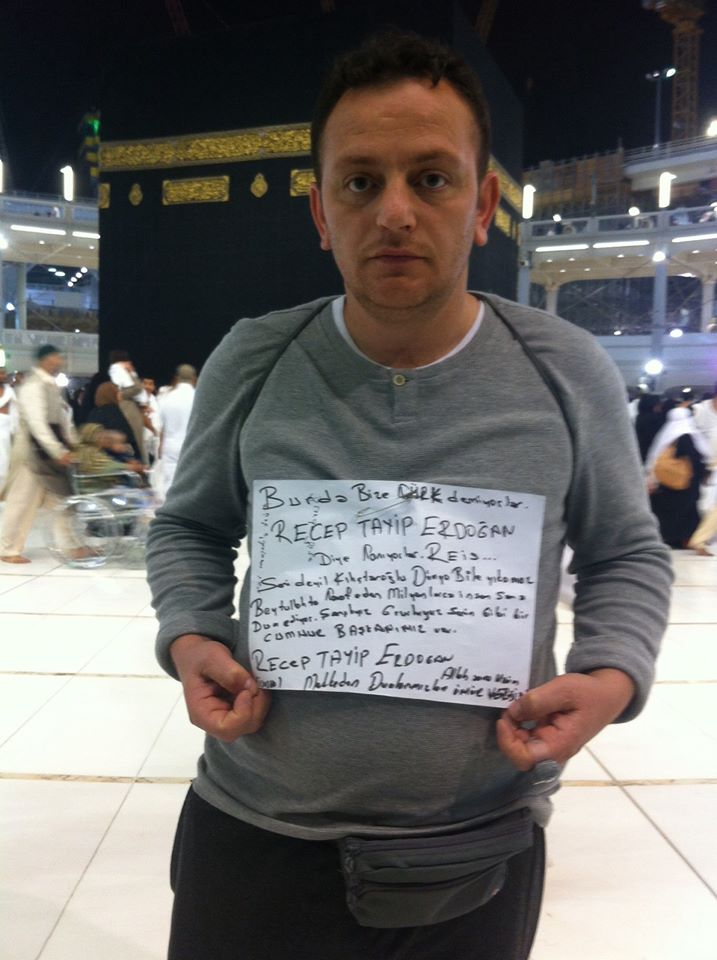 Burda Bize TÜRK demiyorlar.
RECEP TAYİP ERDOĞAN
Diye Tanıyorlar. REİS...
Seni deyil Kılıçtaroğlu Dünya Bile yıkamaz
Beytullahta Tavafeden Milyonlarca insan Sana
Dua ediyor. Şanslıyız Gururluyuz Senin Gibi bir
CUMHUR BAŞKANIMIZ var.
RECEP TAYİP ERDOĞAN
Allah sana Uzun
Mekkeden Dualarımızla ömür VERSİN